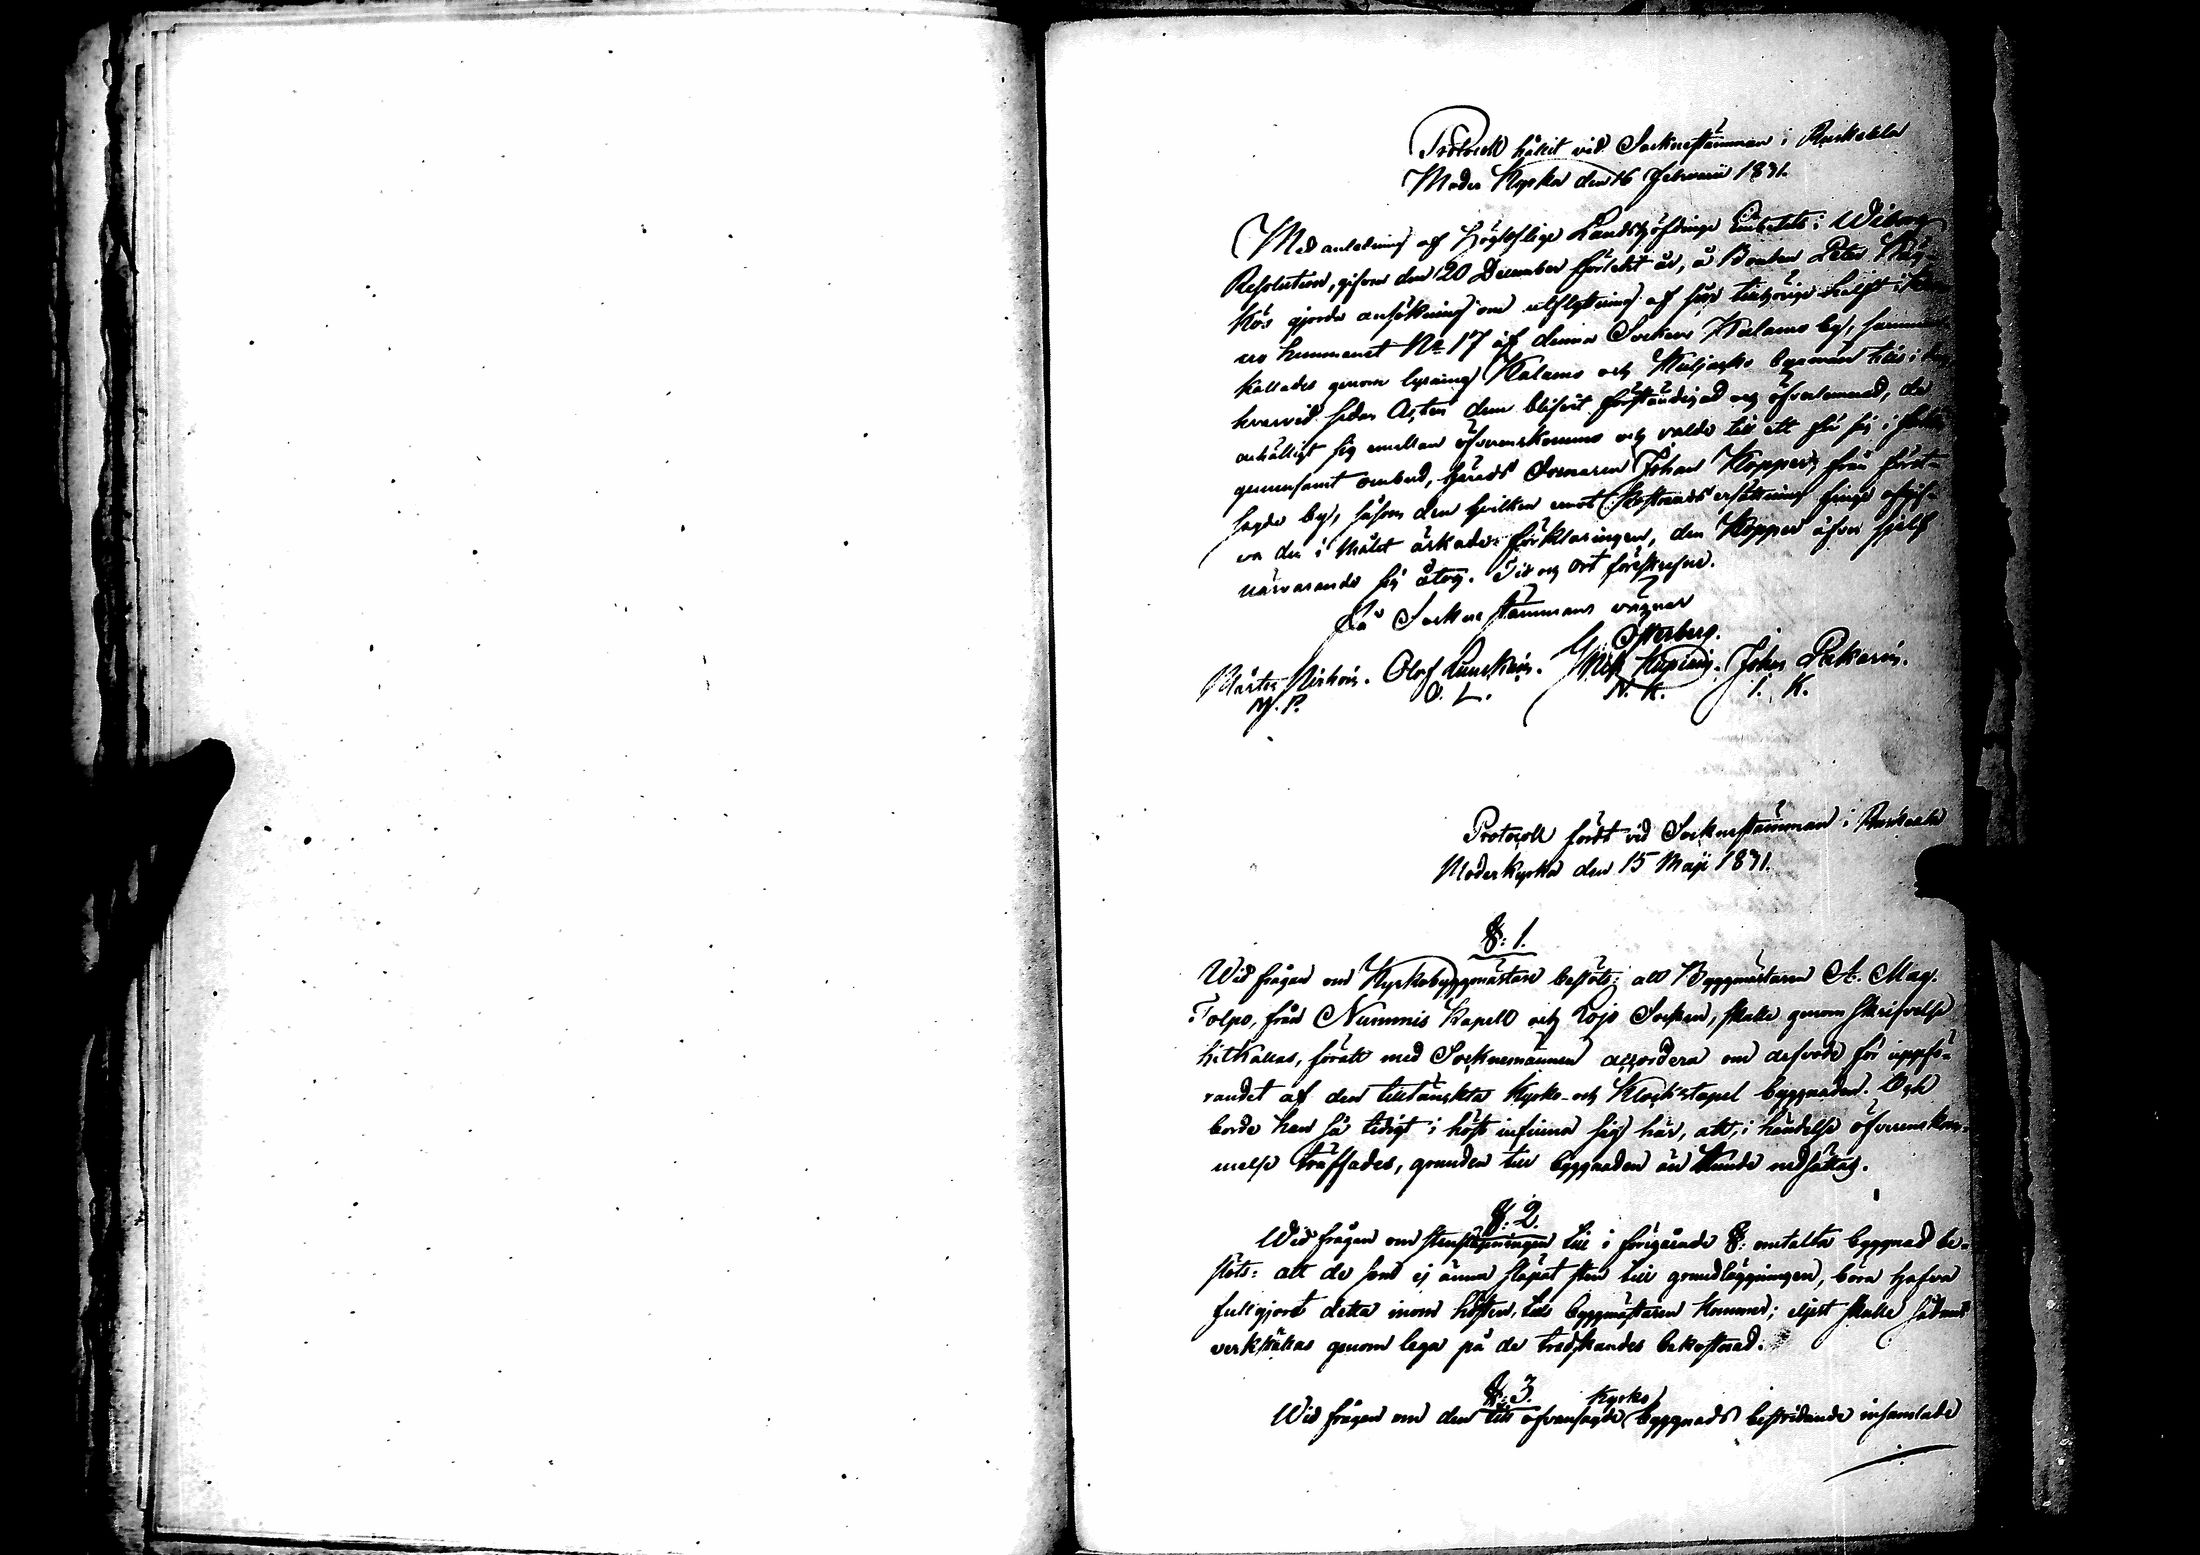 Protocoll hållit vid Sockne stämman i Ruskeala
Moder Kyrka den 16 Februarii 1831.
Med anledning af Höglofliga Landshöfdinge Embetets i Wiborg
Resolution, gifven den 20 December förledet år, å Bonden Peter
kös gjorda ansökning om utflyttning af sin tillhöriga hälft i
ra hemmanet No 17 af denna Socken Kalamo by, samman
kallades genom lysning Kalamo och byamän till i dag,
hvarvid sedan Acten dem blifvit förständigad och öfverlemnad, de
enhälligt sig emellan öfverenskommo och valde till att gå sig i
gemensamt ombud, Härads Domaren Johan Kopper, från först-
sagde by, såsom den hvilken emot kostnads ersättning finge afgif-
va de i målet äskade förklaringen, den Kopper äfven sjelf
närvarande sig åtog. Tid och Ort föreskrefne.
På Sockne stämmans vägnar
Österberg.
Mårten Olof Johan Pakarin.
M. P. O. L. N. K. I. K.
Protocoll fördt vid Socknestämman i Ruskeala
Moderkyrka den 15 Maji 1831.
§: 1.
Wid frågan om Kyrkobyggmästare beslöts; att Byggmästaren A. Mag.
Tolpo, från Nummis Kapell och Lojo Socken, skulle genom skrifvelse
hitkallas, föratt med Socknemännen accordera om arfvode för uppfö-
randet af den tilltänkta Kyrko- och Klockstapel byggnaden. Och
borde han så tidigt i höst infinna sig här, att, i händelse öfverenskom-
melse träffades, grunden till byggnaden än kunde nedsättas.
§: 2.
Wid frågan om stensläpningen till i föregående §: omtalta byggnad be-
slöts: att de som ej ännu släpat sten till grundläggningen, böra hafva
fullgjort detta inom hösten, tills byggmästaren kommer; eljest skulle sådant
verkställas genom lega på de tredskandes bekostnad.
§: 3.
Kyrko
Wid frågan om den till ofvansagde byggnads bestridande insamlade